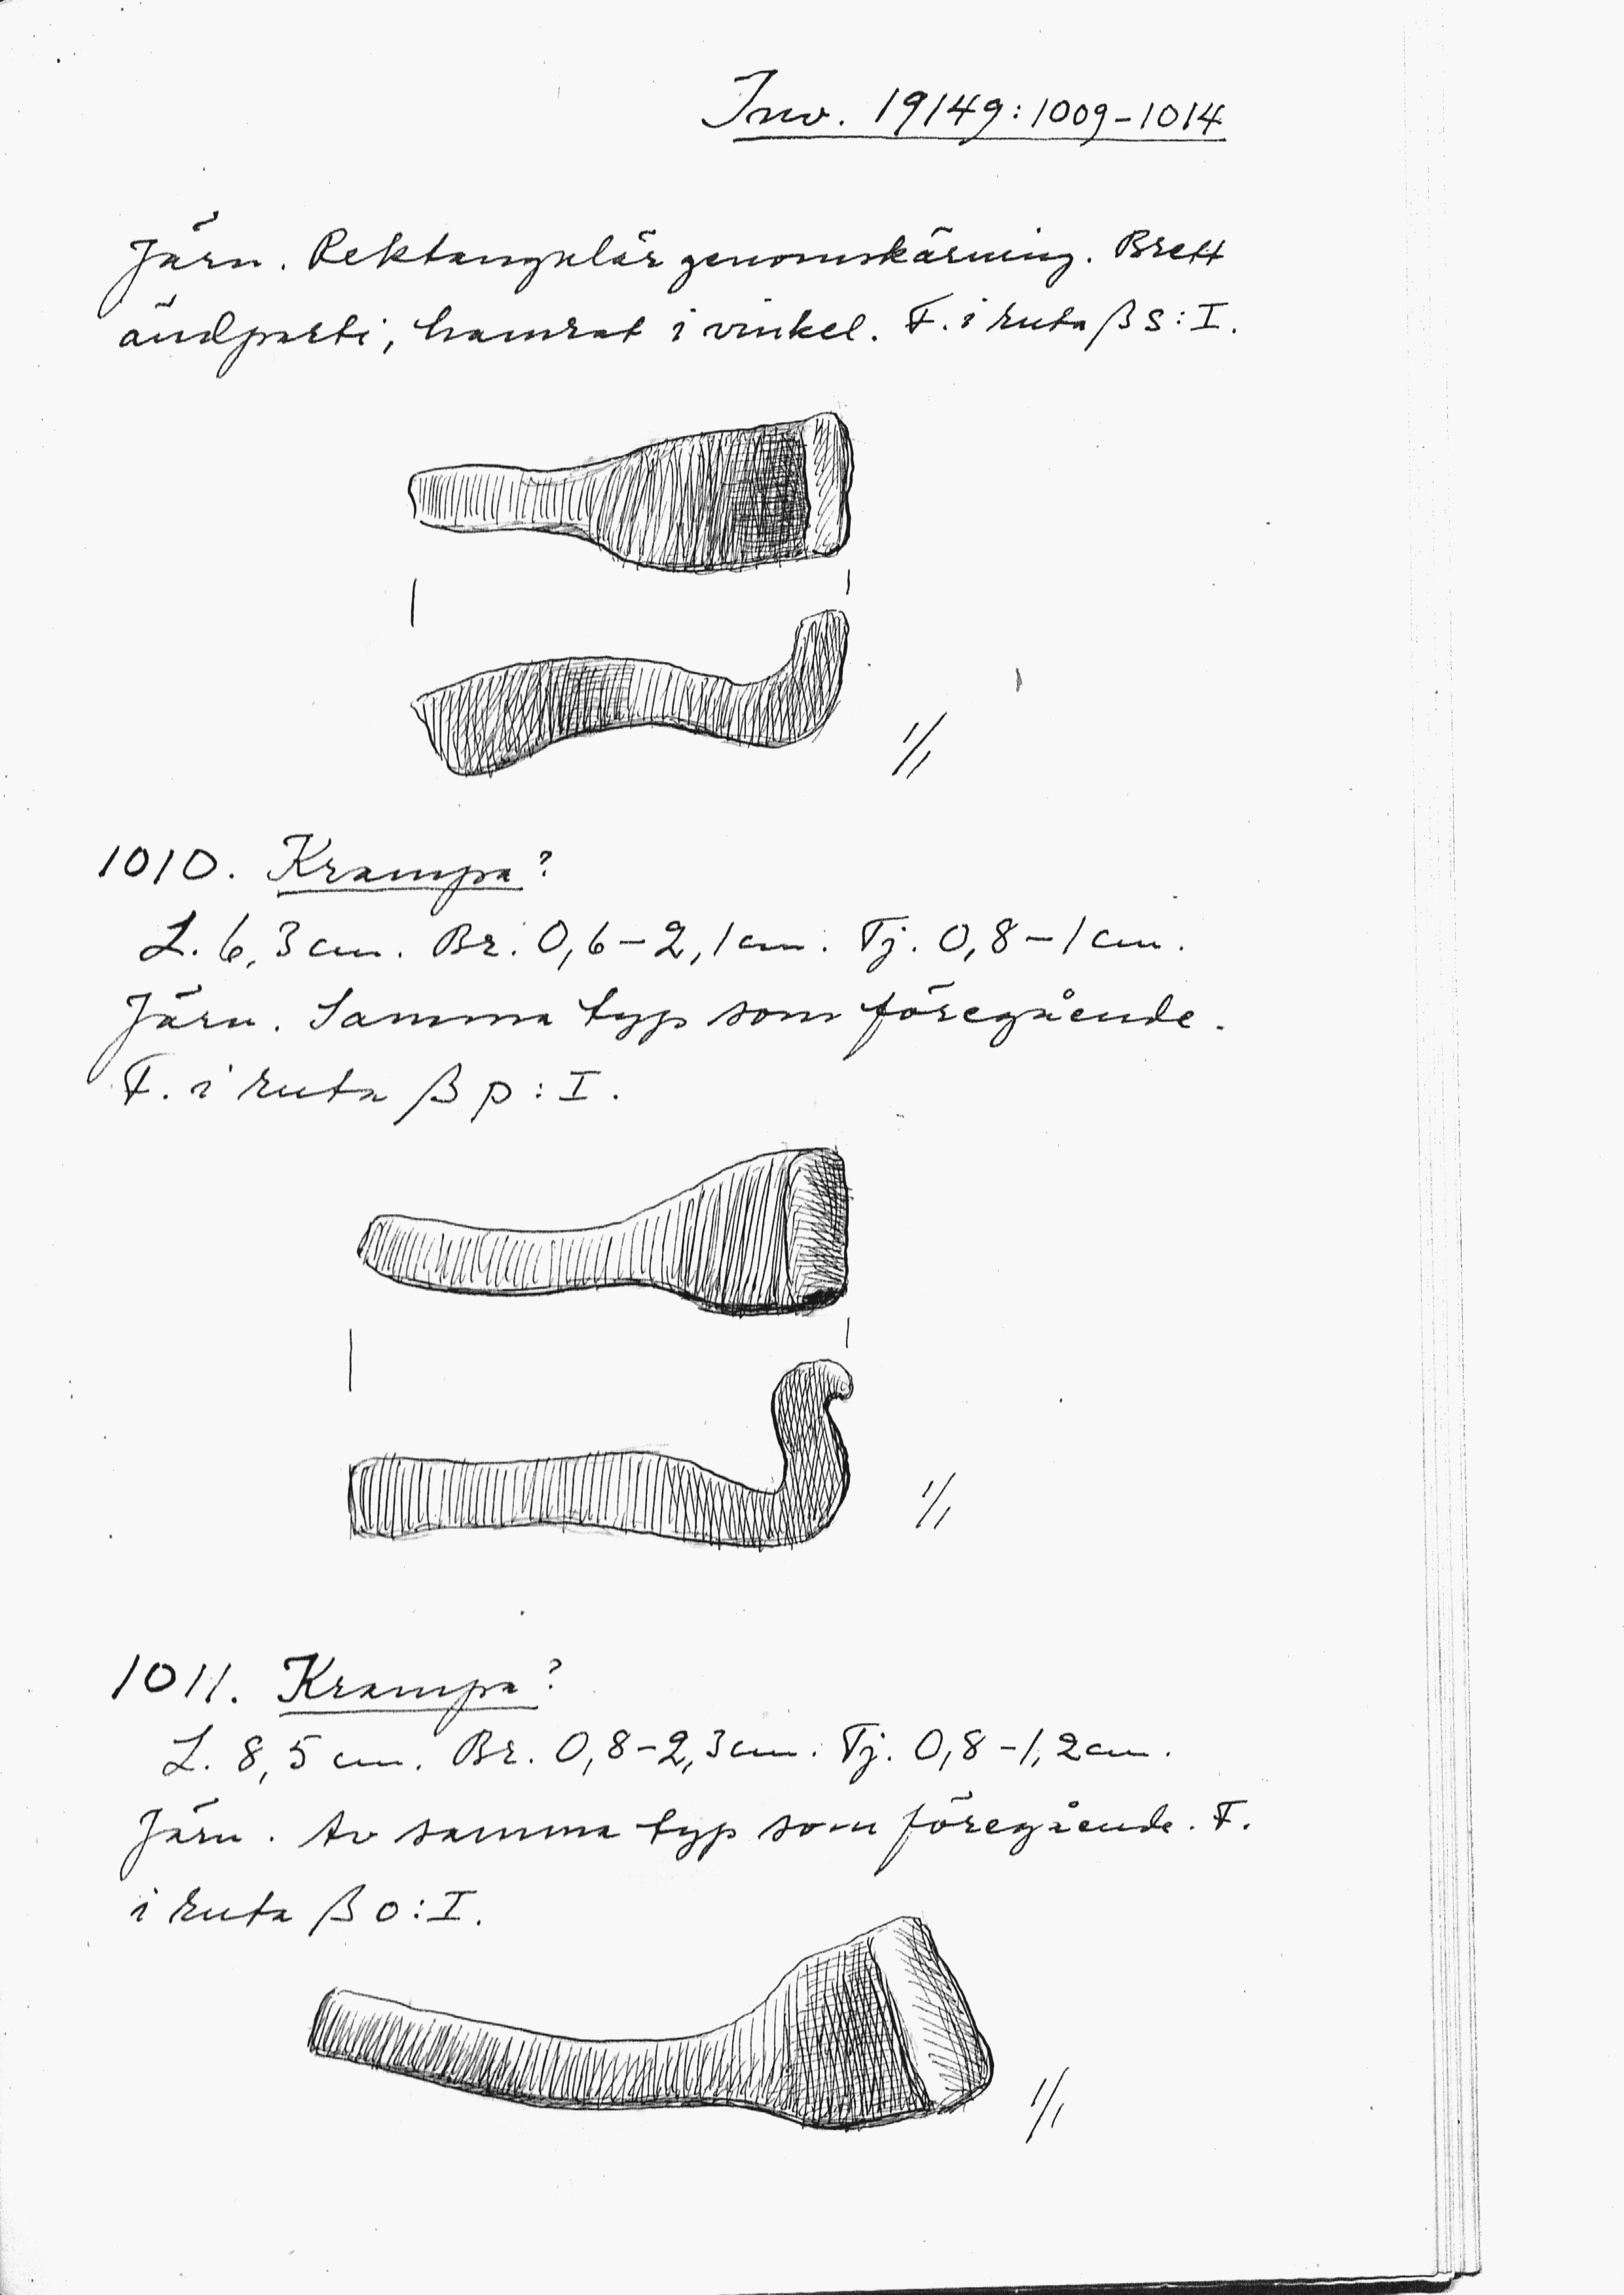 Inv. 19149:1009-1014
Järn. Rektangulär genomskärning. Brett
ändparti, hamrat i vinkel. F. i ruta ß s:I.
1/1
1010. Krampa?
L. 6,3 cm. Br. 0,6-2,1 cm. Tj. 0,8-1 cm.
Järn. Samma typ som föregående.
F. i ruta ß p:I.
1/1
1011. Krampa?
L. 8,5 cm. Br. 0,8-2,3 cm. Tj. 0,8-1,2 cm.
Järn. Av samma typ som föregående. F.
i ruta ß o:I.
1/1